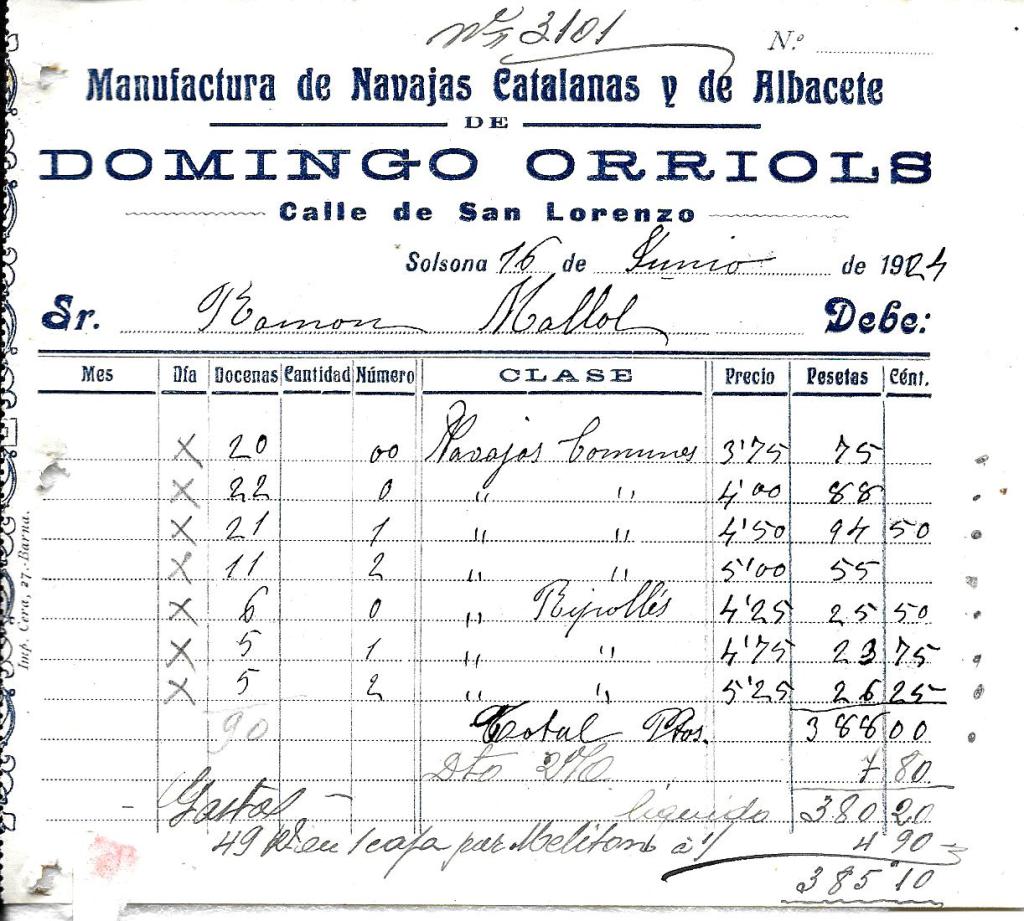 3101 N.º
Manufactura de Navajas Catalanas y de Albacete
DE
DOMINGO ORRIOLS
Calle de San Lorenzo
Solsona 16 de Junio de 1924
Sr. Ramon Mallol Debe:
Mes Día Docenas Cantidad Número CLASE Precio Pesetas Cént.
X 20 00 Navajas Comunes 3'75 75
X 22 0 " " 4'00 88
X 21 1 " " 4'50 94 50
X 11 2 " " 5'00 55
X 6 0 " Ripollés 4'25 25 50
X 5 1 " " 4'75 23 75
X 5 2 " " 5'25 26 25
90 Total Ptas. 388 00
Dto 2% 7 80
Gastos - líquido 380 20
49 en 1 caja par Meliton à 1/ 4 90
385 10
Imp. Cera, 27.-Barna.